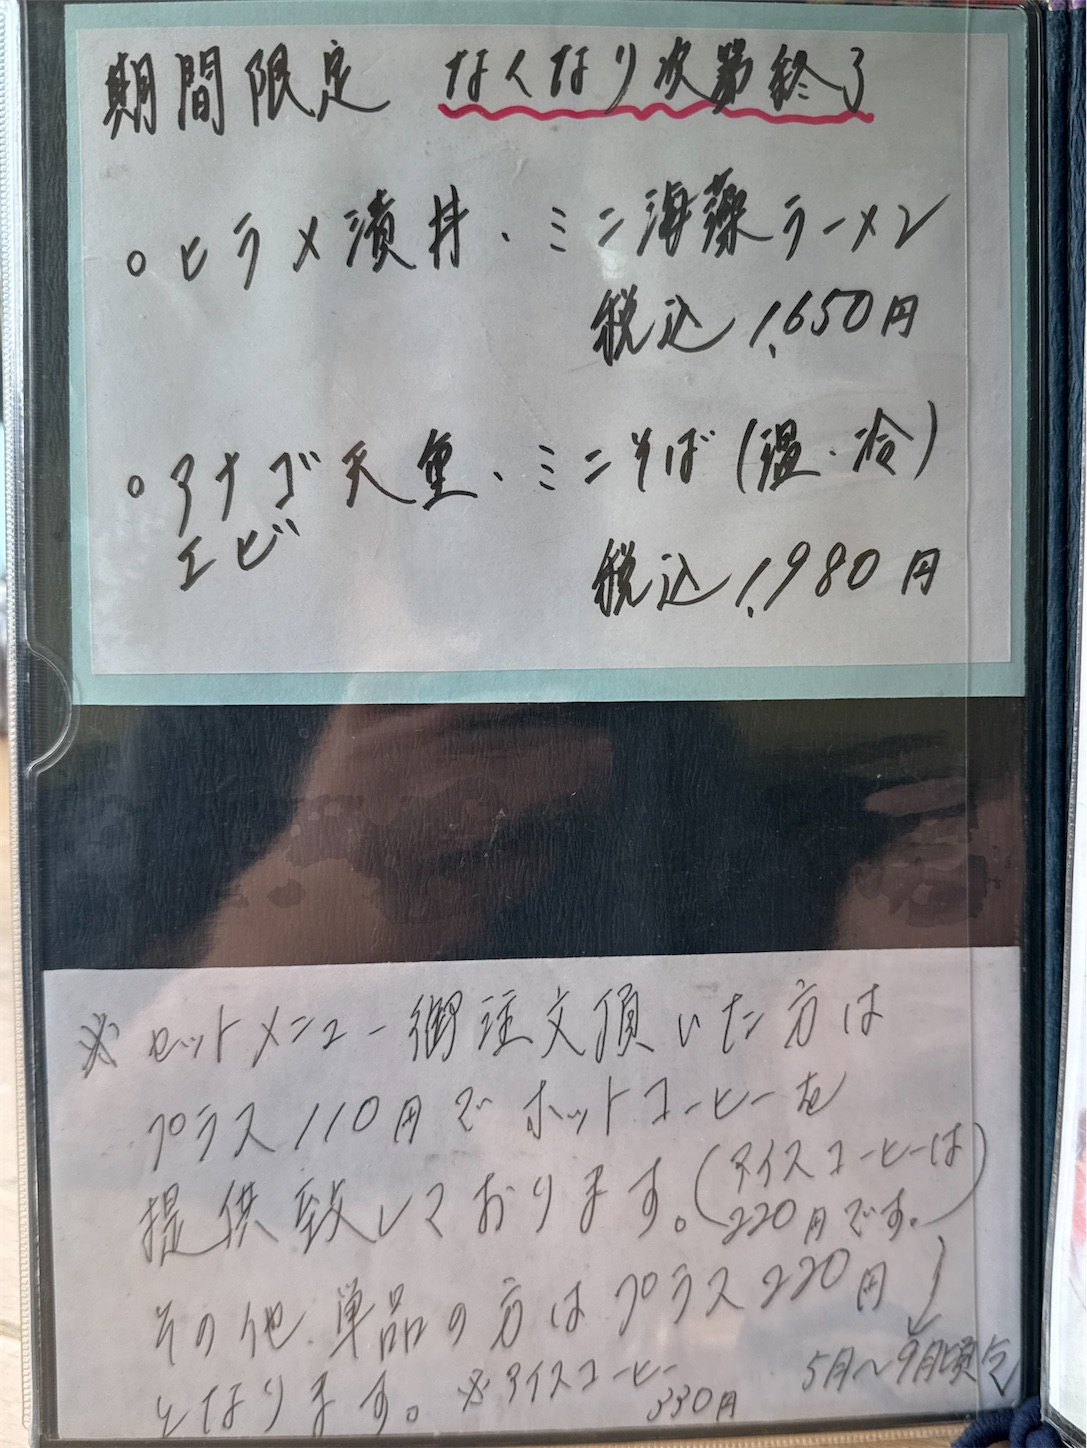 期間限定 なくなり次第終了
○ヒラメ漬丼・ミニ海藻ラーメン
税込 1,650円
○アナゴ天重・ミニそば(温・冷)
エビ
税込 1,980円
※セットメニュー御注文頂いた方は
プラス110円でホットコーヒーを
提供致しております。(アイスコーヒーは
220円です。)
その他、単品の方はプラス220円
となります。※アイスコーヒー
330円
5月~9月頃